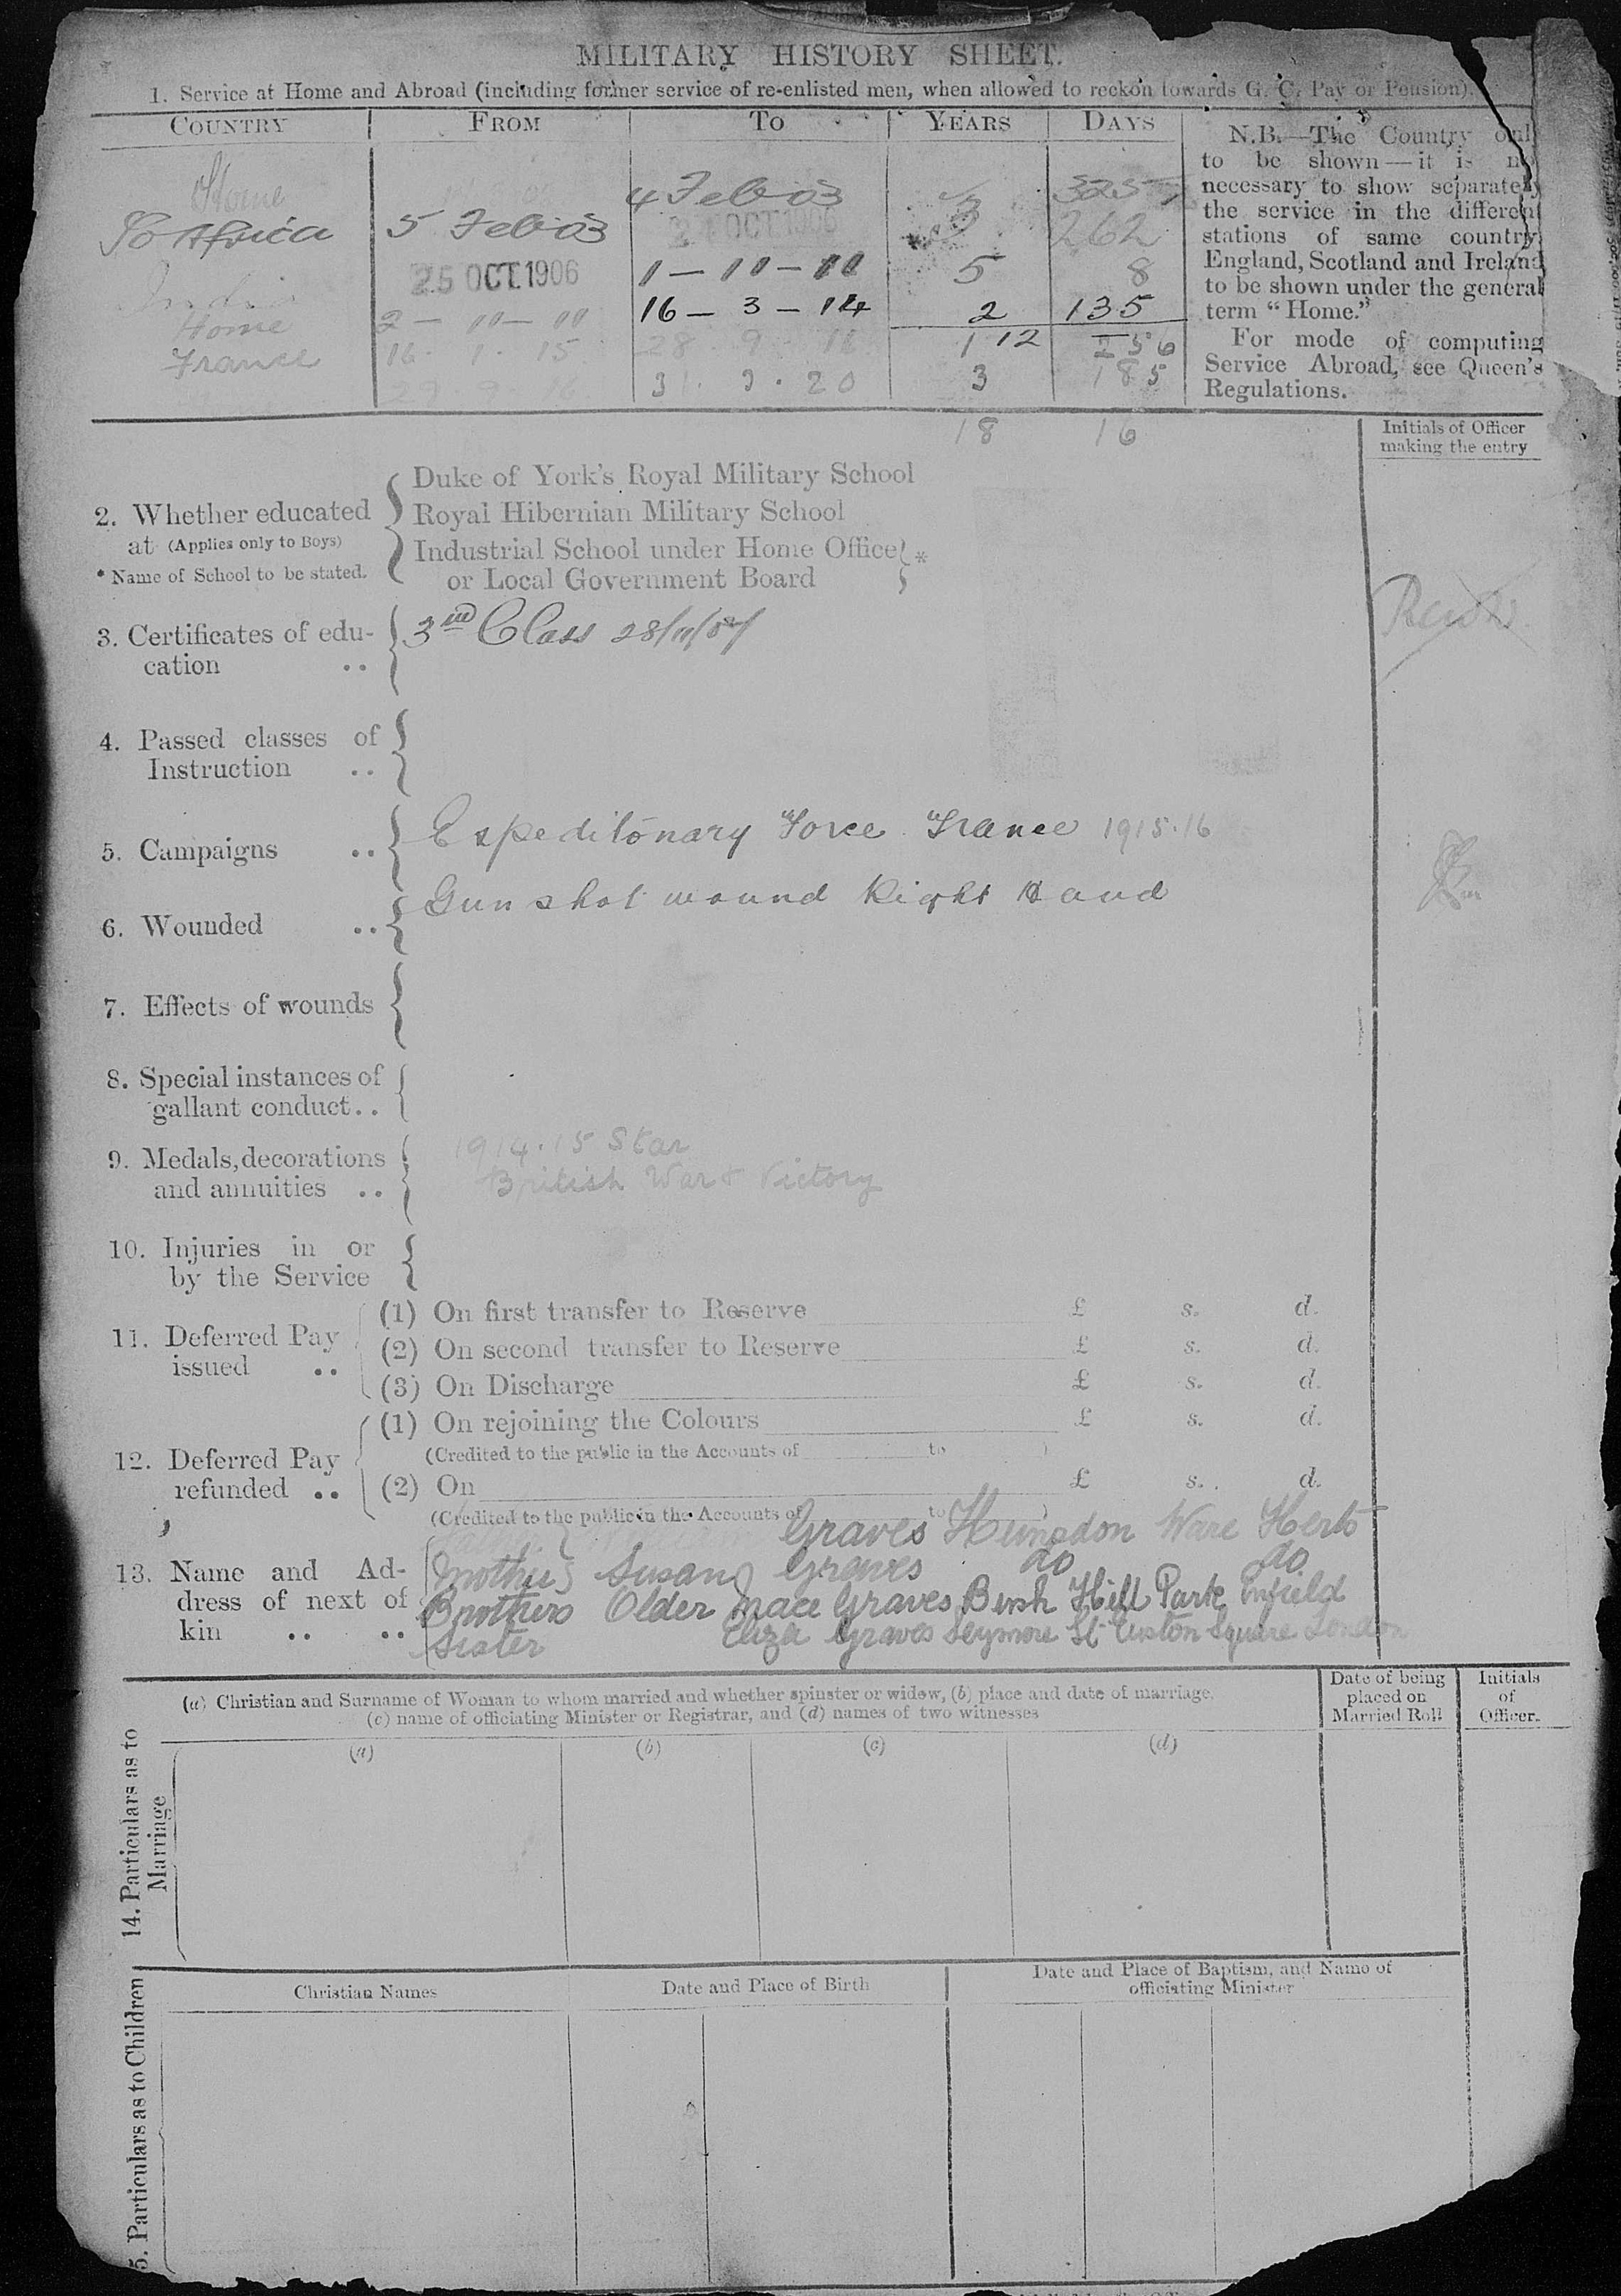 MILITARY HISTORY SHEET.
1. Service at Home and Abroad (including former service of re-enlisted men, when allowed to reckon towards G. C. Pay or Pension).
COUNTRY FROM TO YEARS DAYS
Home 4 Feb 03 325
So Africa 5 Feb 03 24 OCT 1906 3 262
India 25 OCT 1906 1 - 11 - 11 5 8
Home 2 - 11 - 11 16 - 3 - 14 2 135
France 16 . 1 . 15 28 . 9 . 16 1 12 256
29 9 16 31 . 3 . 20 3 185
18 16
N.B.—The Country onl
to be shown—it is no
necessary to show separately
the service in the different
stations of same country.
England, Scotland and Ireland
to be shown under the general
term "Home."
For mode of computing
Service Abroad, see Queen's
Regulations.
Initials of Officer
making the entry
2. Whether educated
at (Applies only to Boys)
* Name of School to be stated.
Duke of York's Royal Military School
Royal Hibernian Military School
Industrial School under Home Office
or Local Government Board *
3. Certificates of edu-
cation ..
3rd Class 28/11/04
4. Passed classes of
Instruction ..
5. Campaigns ..
Expeditonary Force France 1915.16
6. Wounded ..
Gun shot wound Right Hand
7. Effects of wounds
8. Special instances of
gallant conduct..
9. Medals, decorations
and annuities ..
1914.15 Star
British War & Victory
10. Injuries in or
by the Service
11. Deferred Pay
issued ..
(1) On first transfer to Reserve £ s. d.
(2) On second transfer to Reserve £ s. d.
(3) On Discharge £ s. d.
12. Deferred Pay
refunded ..
(1) On rejoining the Colours £ s. d.
(Credited to the public in the Accounts of to )
(2) On £ s. d.
(Credited to the public in the Accounts of to )
13. Name and Ad-
dress of next of
kin .. ..
Graves Hunsdon Ware Herts
Mother Susan Graves do do
Brothers Older Mace Graves Bush Hill Park Enfield
Sister Eliza Graves Seymore St Euston Square London
14. Particulars as to
Marriage
(a) Christian and Surname of Woman to whom married and whether spinster or widow, (b) place and date of marriage,
(c) name of officiating Minister or Registrar, and (d) names of two witnesses
Date of being
placed on
Married Roll
Initials
of
Officer.
(a) (b) (c) (d)
5. Particulars as to Children
Christian Names
Date and Place of Birth
Date and Place of Baptism, and Name of
officiating Minister